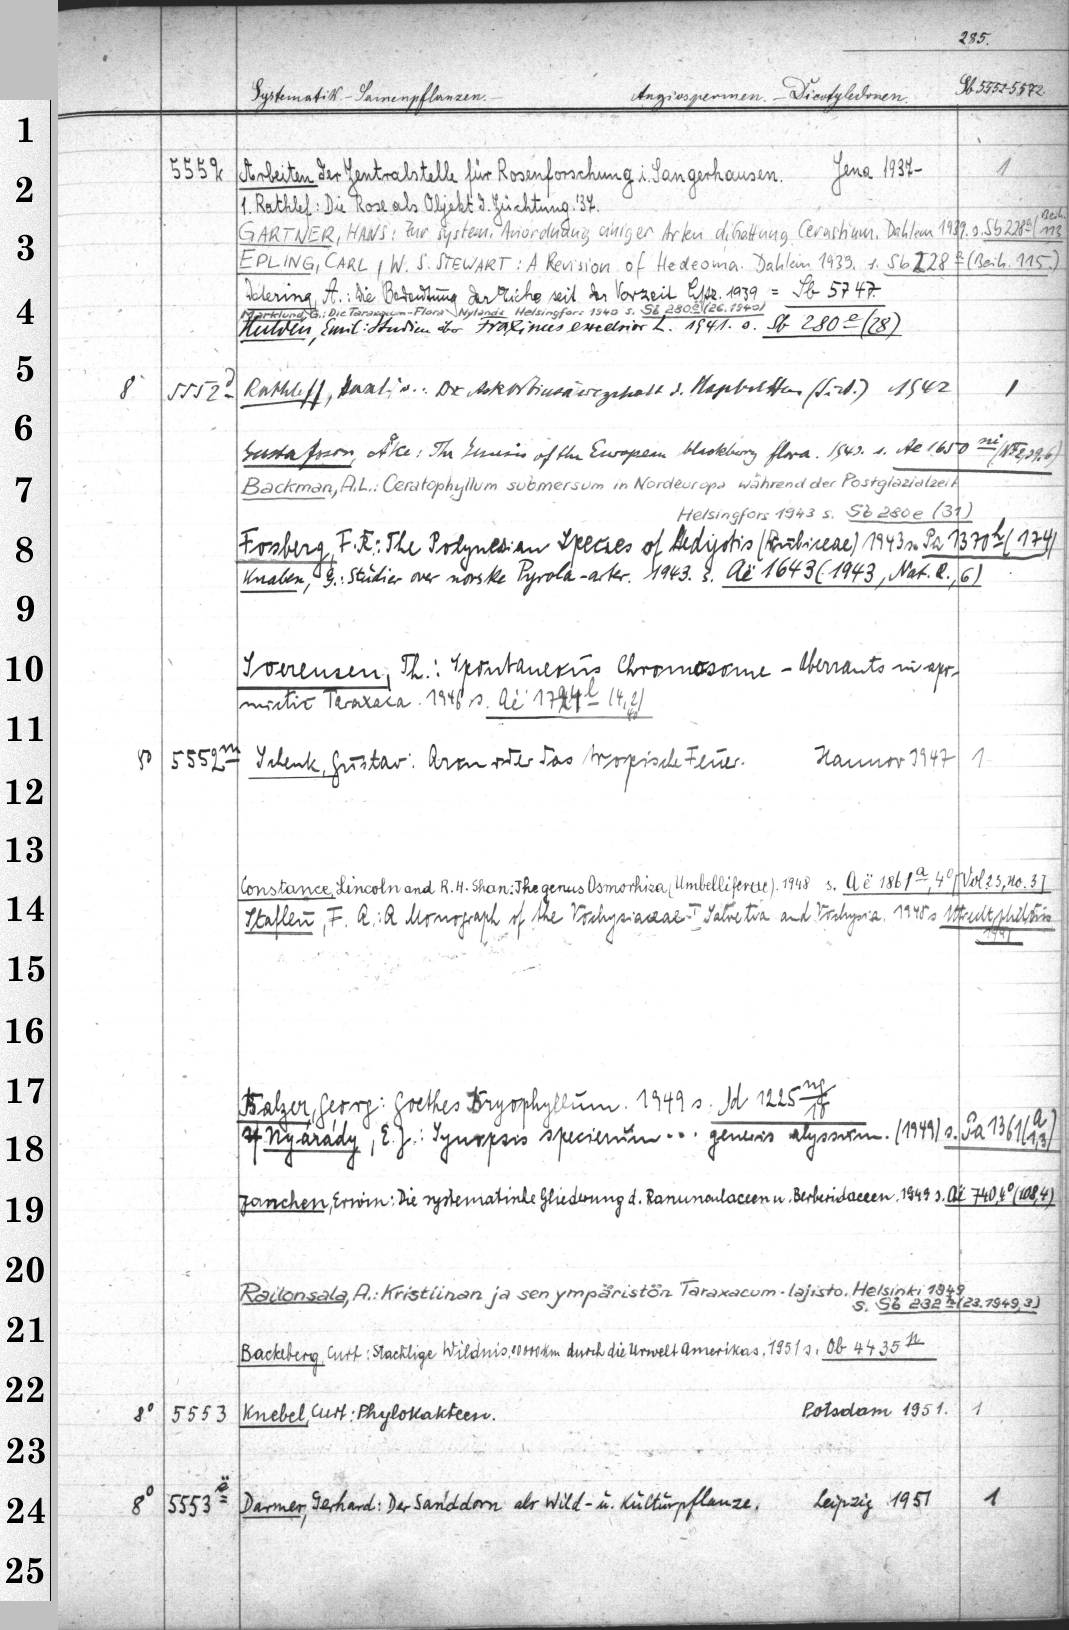 285.
Systematik - Samenpflanzen. - Angiospermen. - Dicotyledonen. Sb 5552-5572
1
5552 Arbeiten der Zentralstelle für Rosenforschung i. Sangerhausen. Jena 1937- 1
2
1. Rathlef: Die Rose als Objekt d. Züchtung. '37.
GÄRTNER, HANS: Zur system. Anordnung einiger Arten d. Gattung Cerastium. Dahlem 1939. s. Sb 228 a (Beih. 113
3
EPLING, CARL, W. S. STEWART: A Revision of Hedeoma. Dahlem 1939. s. Sb 228 a (Beih. 115.)
Dölering, A.: Die Bedeutung der Eiche seit der Vorzeit 1939 = Sb 5747.
Marklund, G.: Die Taraxacum-Flora Nylands Helsingfors 1940 s. Sb 280e (26. 1940)
4
Hultén, Emil: Studien über Fraxinus excelsior L. 1941. s. Sb 280 e (28)
5
8° 5552 Rathleff, : Der Ascorbinsäuregehalt d. 1942 1
6
Gustafsson, Åke: The Genesis of the European blackberry flora. 1943. s. Ae 1650
7
Backman, A.L.: Ceratophyllum submersum in Nordeuropa während der Postglazialzeit
Helsingfors 1943 s. Sb 280e (31)
8
Fosberg, F.R.: The Polynesian Species of Hedyotis (Rubiceae) 1943 s. Pa 1370 h (174)
Knaben, G.: Studier over norske Pyrola-arter. 1943. s. Aë 1643 (1943, Nat. R., 6)
9
10
Soerensen, Th.: Spontaneous Chromosome - Aberrants in apo-
mictic Taraxaca. 1946 s. Aë
11
8° 5552 m Schenk, Gustav: Aron oder das tropische Feuer. Hannov 1947 1
12
13
Constance, Lincoln and R. H. Shan: The genus Osmorhiza (Umbelliferae). 1948 s. Aë 1861 a, 4° [Vol 23, no. 3]
14
Stafleu, F. A.: A Monograph of the Vochysiaceae I Salvertia and Vochysia. 1948 s Utrecht,
15
16
17
Balzer, Georg: Goethes Bryophyllum. 1949 s. Jd 1225
18
Nyárády, E.J.: Synopsis specierum ... generis alyssum. (1949) s. Pa 1361 (A 1,3)
19
Janchen, Erwin: Die systematische Gliederung d. Ranunculaceen u. Berberidaceen. 1949 s. Aë 740,4° (108,4)
20
Railonsala, A.: Kristiinan ja sen ympäristön Taraxacum-lajisto. Helsinki 1949
s. Sb 232 (23.1949,3)
21
Backeberg, Curt: Stachlige Wildnis. durch die Urwelt Amerikas. 1951 s. Ob 4435 n
22
8° 5553 Knebel, Curt: Phyllokakteen. Potsdam 1951. 1
23
24
8° 5553 Darmer, Gerhard: Der Sanddorn als Wild- u. Kulturpflanze. Leipzig 1951 1
25